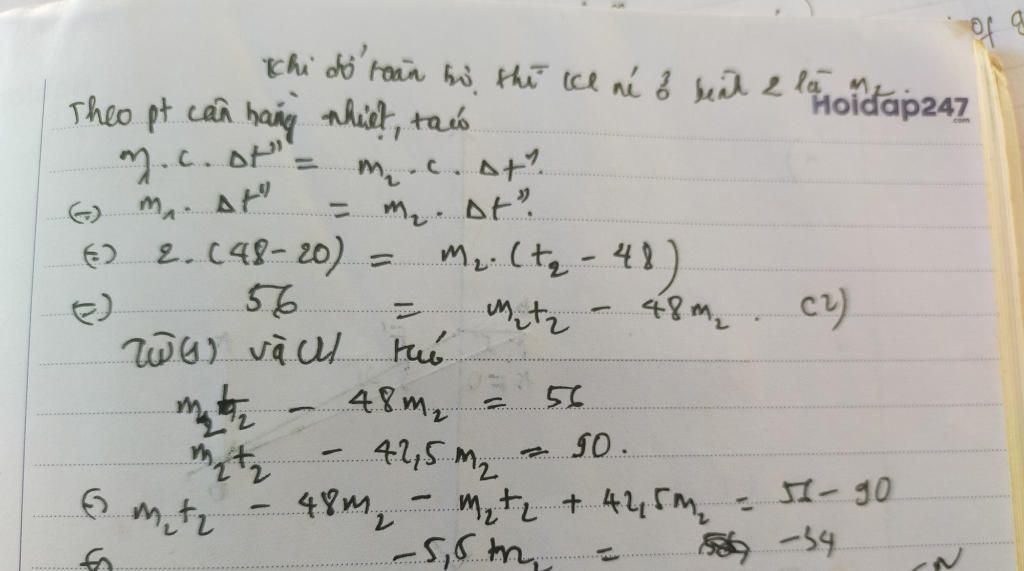 khi đó toàn bộ thì KL nc ở bình 2 là m₂
Hoidap247
.com
Theo pt cân bằng nhiệt, ta có
m₁.c.Δt" = m₂.c.Δt".
(=) m₁.Δt" = m₂.Δt".
(=) 2.(48-20) = m₂.(t₂-48)
(=) 56 = m₂t₂ - 48m₂. (2)
Từ (1) và (2) ta có
m₂t₂ - 48m₂ = 56
m₂t₂ - 42,5m₂ = 90.
(=) m₂t₂ - 48m₂ - m₂t₂ + 42,5m₂ = 56-90
(=) -5,5m₂ = -34